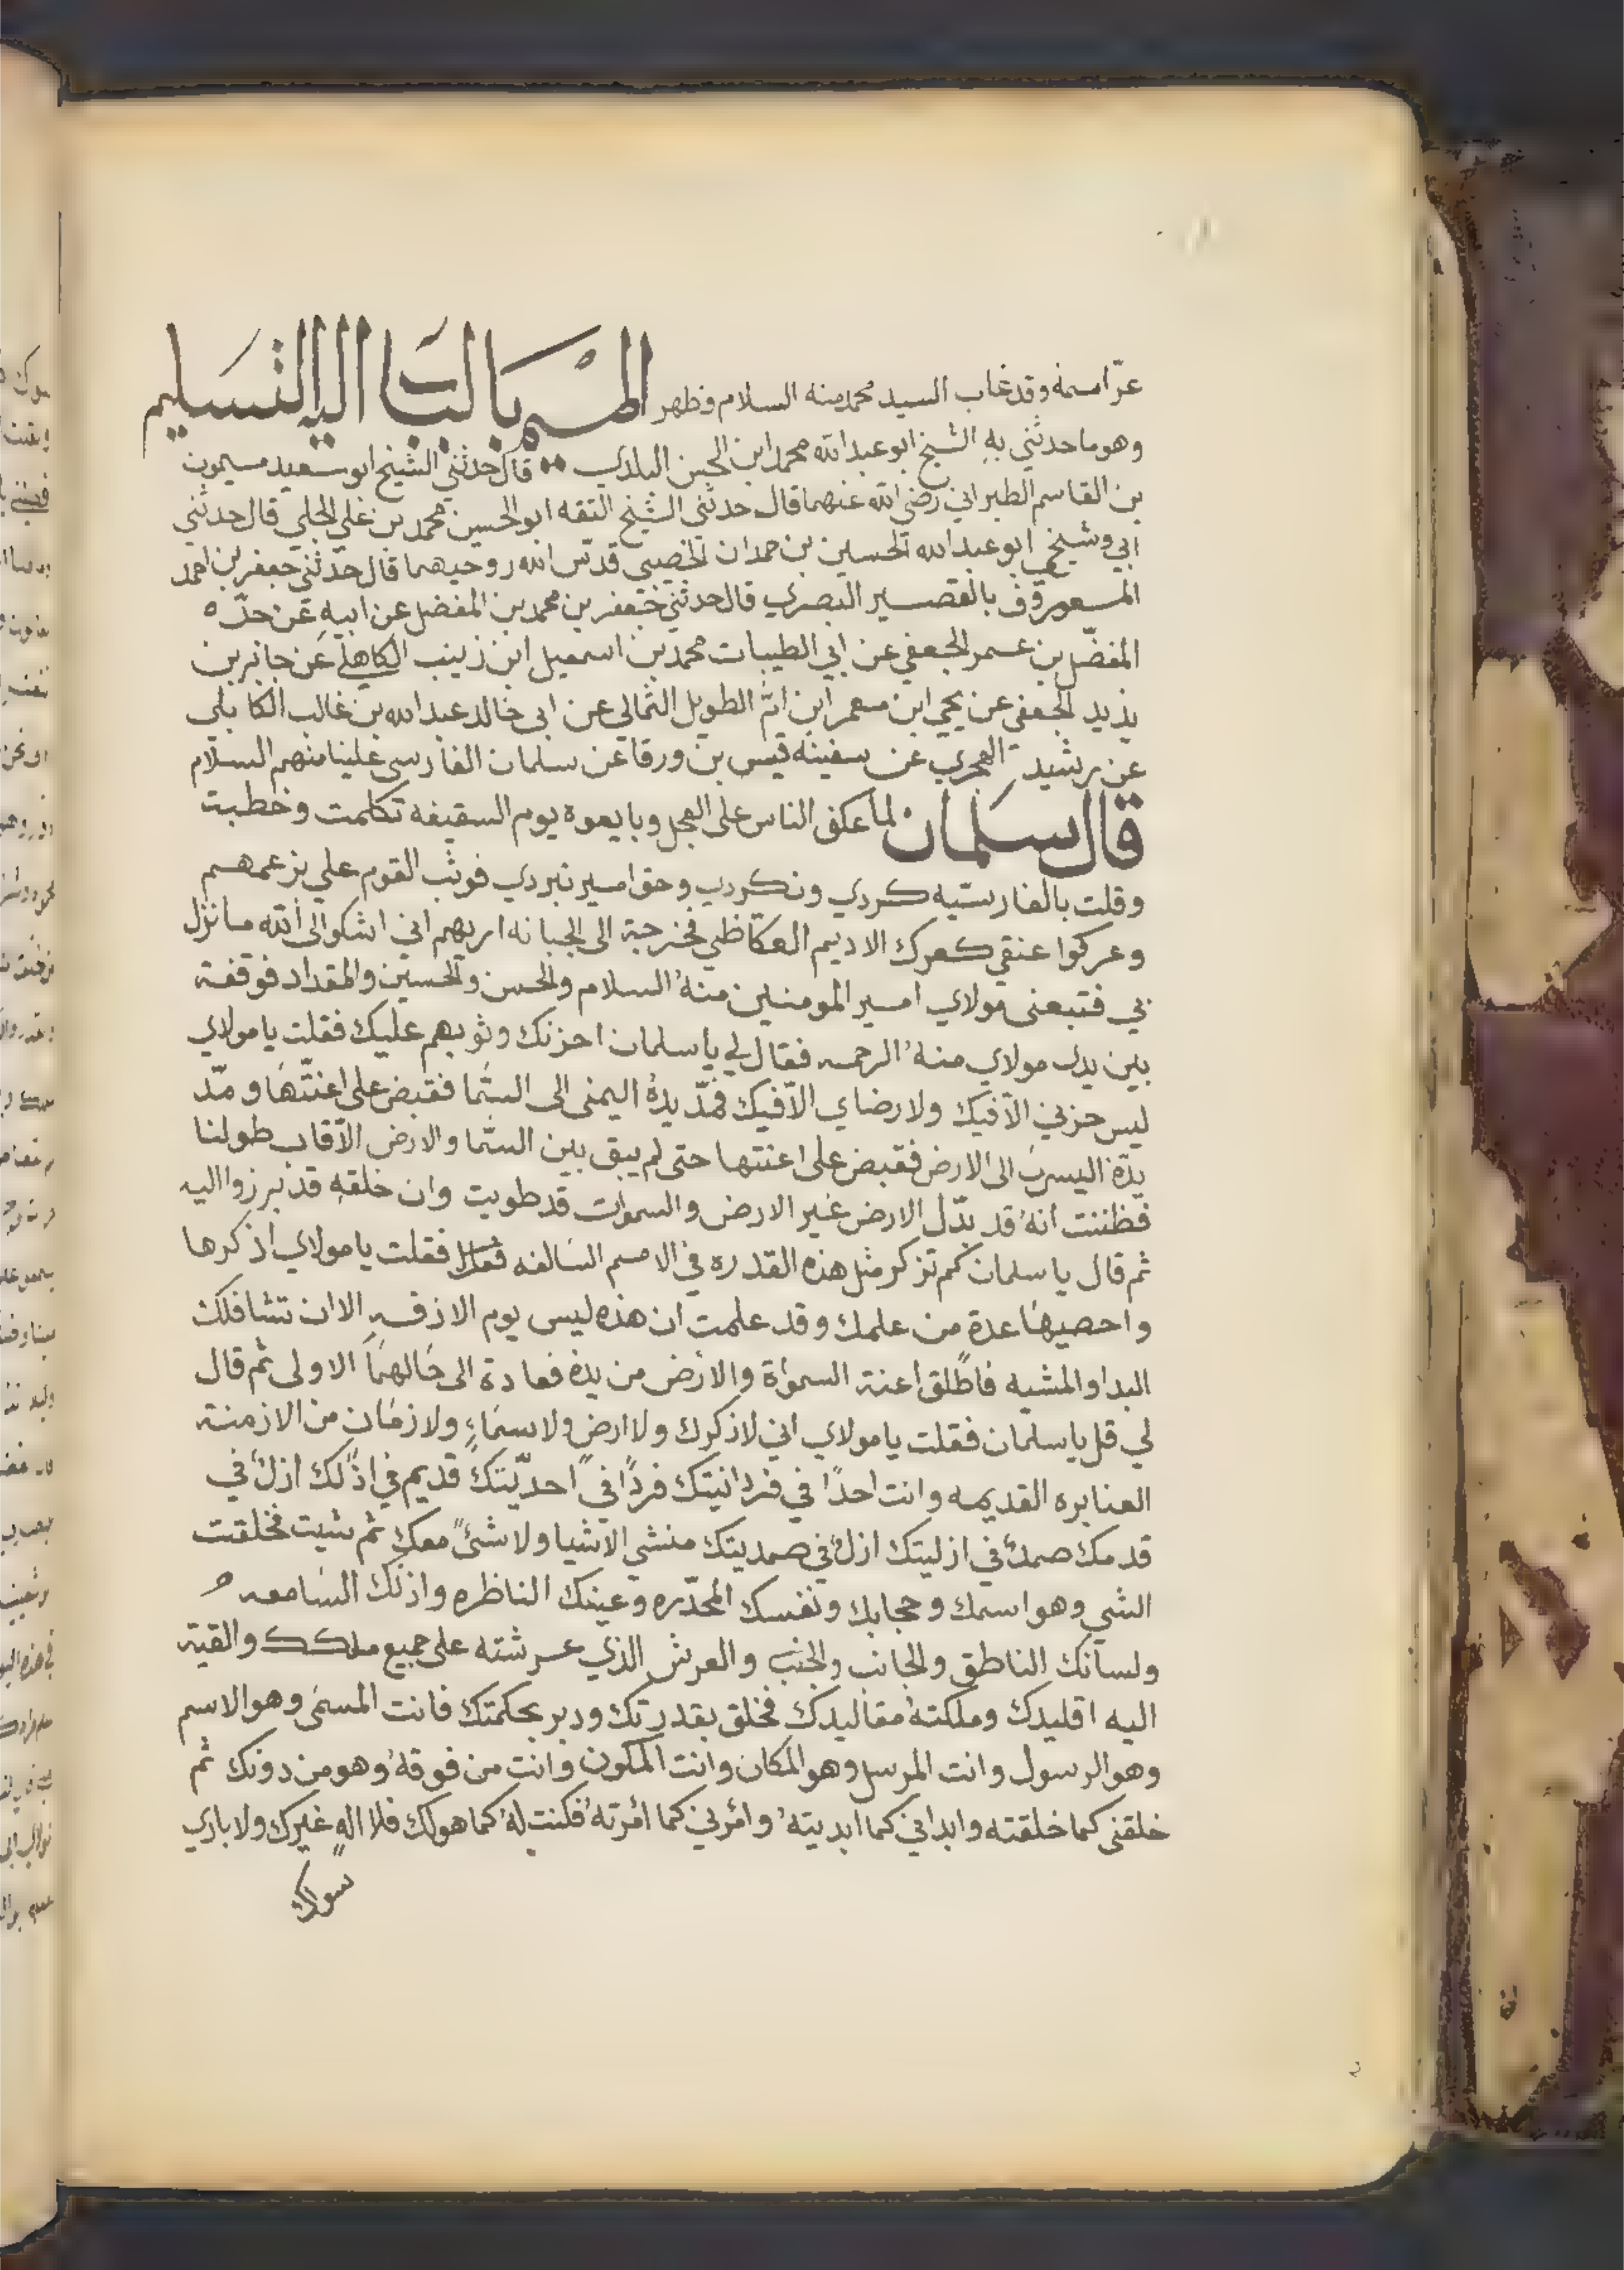 عز اسمه وقد غاب السيد محمد منه السلام وظهر المسمى بالباب اليه التسليم
وهو ما حدثني به الشيخ ابو عبدالله محمد ابن الحسن البلدي قال حدثني الشيخ ابو سعيد ميمون
بن القاسم الطبراني رضي الله عنهما قال حدثني الشيخ الثقه ابو الحسين محمد بن علي الجلي قال حدثني
ابي وشيخي ابو عبدالله الحسين بن حمدان الخصيبي قدس الله روحيهما قال حدثني جعفر بن احمد
المعروف بالقصير البصري قال حدثني جعفر بن محمد بن المفضل عن ابيه عن جده
المفضل بن عمر الجعفي عن ابي الطيبات محمد بن اسمعيل ابن زينب الكاهلي عن جابر بن
يذيد الجعفي عن يحيى ابن معمر ابن ام الطويل الثمالي عن ابي خالد عبدالله بن غالب الكابلي
عن رشيد الهجري عن سفينه قيس بن ورقا عن سلمان الفارسي علينا منهم السلام
قال سلمان لما عكف الناس على العجل وبايعوه يوم السقيفه تكلمت وخطبت
وقلت بالفارسيه كردي ونكردي وحق امير نبردي فوثب القوم علي بزعمهم
وعركوا عنقي كعرك الاديم العكاظي فخرجة الى الجبانه اريهم اني اشكو الى الله ما نزل
بي فتبعني مولاي امير المومنين منه السلام والحسن والحسين والمقداد فوقفة
بين يدي مولاي منه الرحمه فقال لي يا سلمان احزنك وثوبهم عليك فقلت يا مولاي
ليس حزني الا فيك ولا رضاي الا فيك فمد يده اليمنى الى السما فقبض على اعنتها ومد
يده اليسرى الى الارض فقبض على اعنتها حتى لم يبق بين السما والارض الا قاب طولنا
فظننت انه قد بدل الارض غير الارض والسموات قد طويت وان خلقه قد برزوا اليه
ثم قال يا سلمان كم تزكر مثل هذه القدره في الامم السالفه فقلت يا مولاي اذكرها
واحصيها عدة من علمك وقد علمت ان هذه ليس يوم الازفه الا ان تشا فلك
البدا والمشيه فاطلق اعنة السمواة والارض من يده فعادة الى حالهما الاولى ثم قال
لي قل يا سلمان فقلت يا مولاي اني لاذكرك ولا ارض ولا سماء ولا زمان من الازمنة
الغنابره القديمه وانت احدا في فردانيتك فردا في احديتك قديم في اذلك ازل في
قدمك صمد في ازليتك ازل في صمديتك منشي الاشيا ولا شئ معك ثم شيت فخلقت
الشي وهو اسمك وحجابك ونفسك المحذره وعينك الناظره واذنك السامعه
ولسانك الناطق والجانب والجنب والعرش الذي عرشته على جميع ملكك والقية
اليه اقليدك وملكته مقاليدك فخلق بقدرتك ودبر بحكمتك فانت المسمى وهو الاسم
وهو الرسول وانت المرسل وهو المكان وانت المكون وانت من فوقه وهو من دونك ثم
خلقني كما خلقته وابداني كما ابديته وامرني كما امرته فكنت له كما هو لك فلا اله غيرك ولا باري
سواك